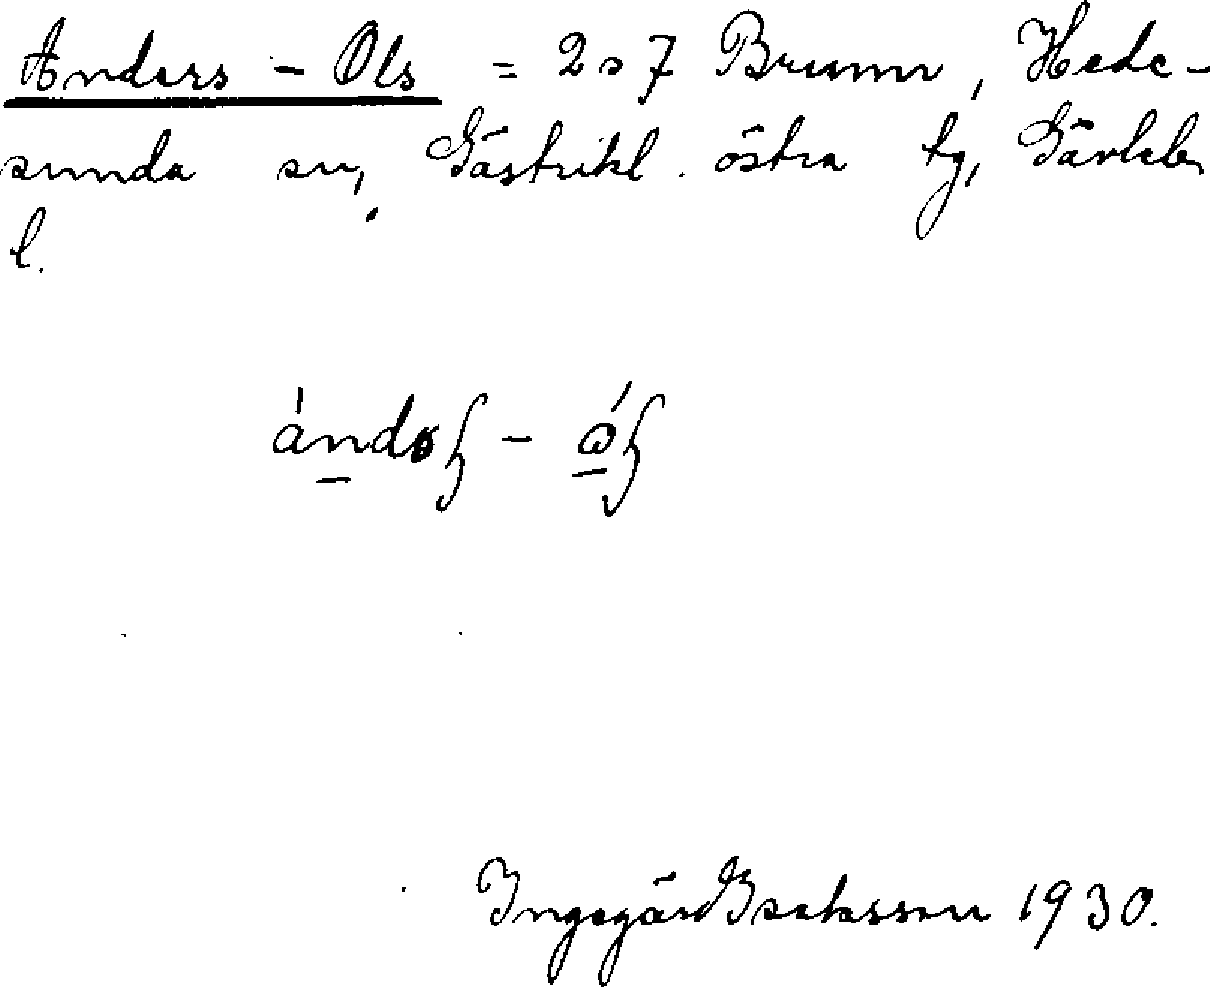 Anders - Ols = 2 o 7 Brunn, Hede-
sunda sn, Gästrikl. östra tg, Gävleb.
l.
Ingegärd Isaksson 1930.